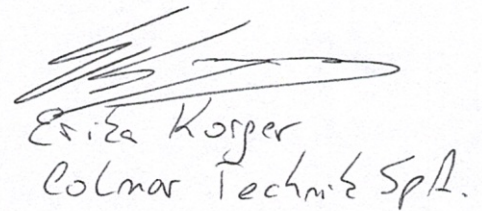 Erika Korger
Colmar Technik SpA.